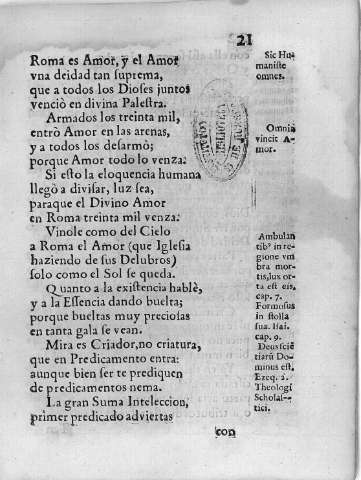 21
Roma es Amor, y el Amor
vna deidad tan suprema,
que a todos los Dioses juntos
venciò en divina Palestra.
Armados los treinta mil,
entrò Amor en las arenas,
y a todos los desarmò;
porque Amor todo lo venza.
Si esto la eloquencia humana
llegò a divisar, luz sea,
paraque el Divino Amor
en Roma treinta mil venza.
Vinole como del Cielo
a Roma el Amor (que Iglesia
haziendo de sus Delubros)
solo como el Sol se queda.
Quanto a la existencia hablè,
y a la Essencia dando buelta;
porque bueltas muy preciosas
en tanta gala se vean.
Mira es Criador, no criatura,
que en Predicamento entra:
aunque bien ser te prediquen
de predicamentos nema.
La gran Suma Inteleccion,
primer predicado adviertas
con
Sic Hu-
maniste
omnes.
Omnia
vincit A-
mor.
Ambulan
tib⁹ in re-
gione vm
bra mor-
tis, lux or-
ta est eis,
cap. 7.
Formosus
in stolla
sua. Isai.
cap. 9.
Deus sciē
tiarū Do-
minus est,
Ezeq. 2.
Theologi
Scholas-
tici.
BIBLIOTECA